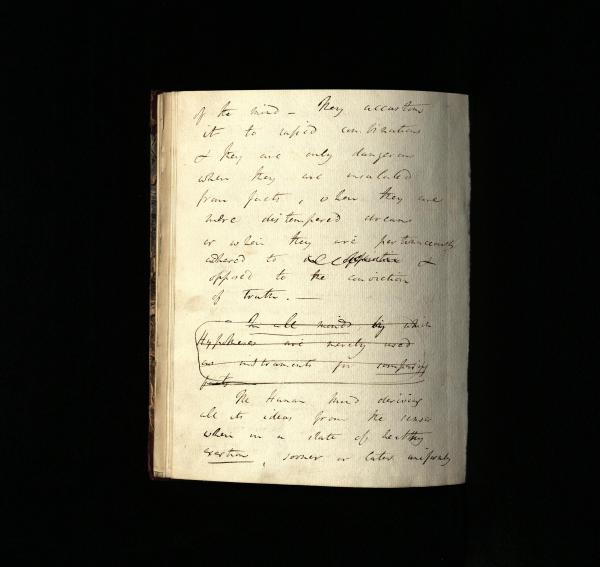 of the mind – They accustom
it to rapid combinations
& they are only dangerous
when they are insulated
from facts, when they are
mere distempered dreams
or when they are pertinaciously
adhered to &
opposed to the conviction
of truth. —
In all minds by which
Hypotheses are merely used
as instruments for comparing
facts
The Human mind deriving
all its ideas from the senses
when in a state of healthy
exertion, sooner or later uniformly